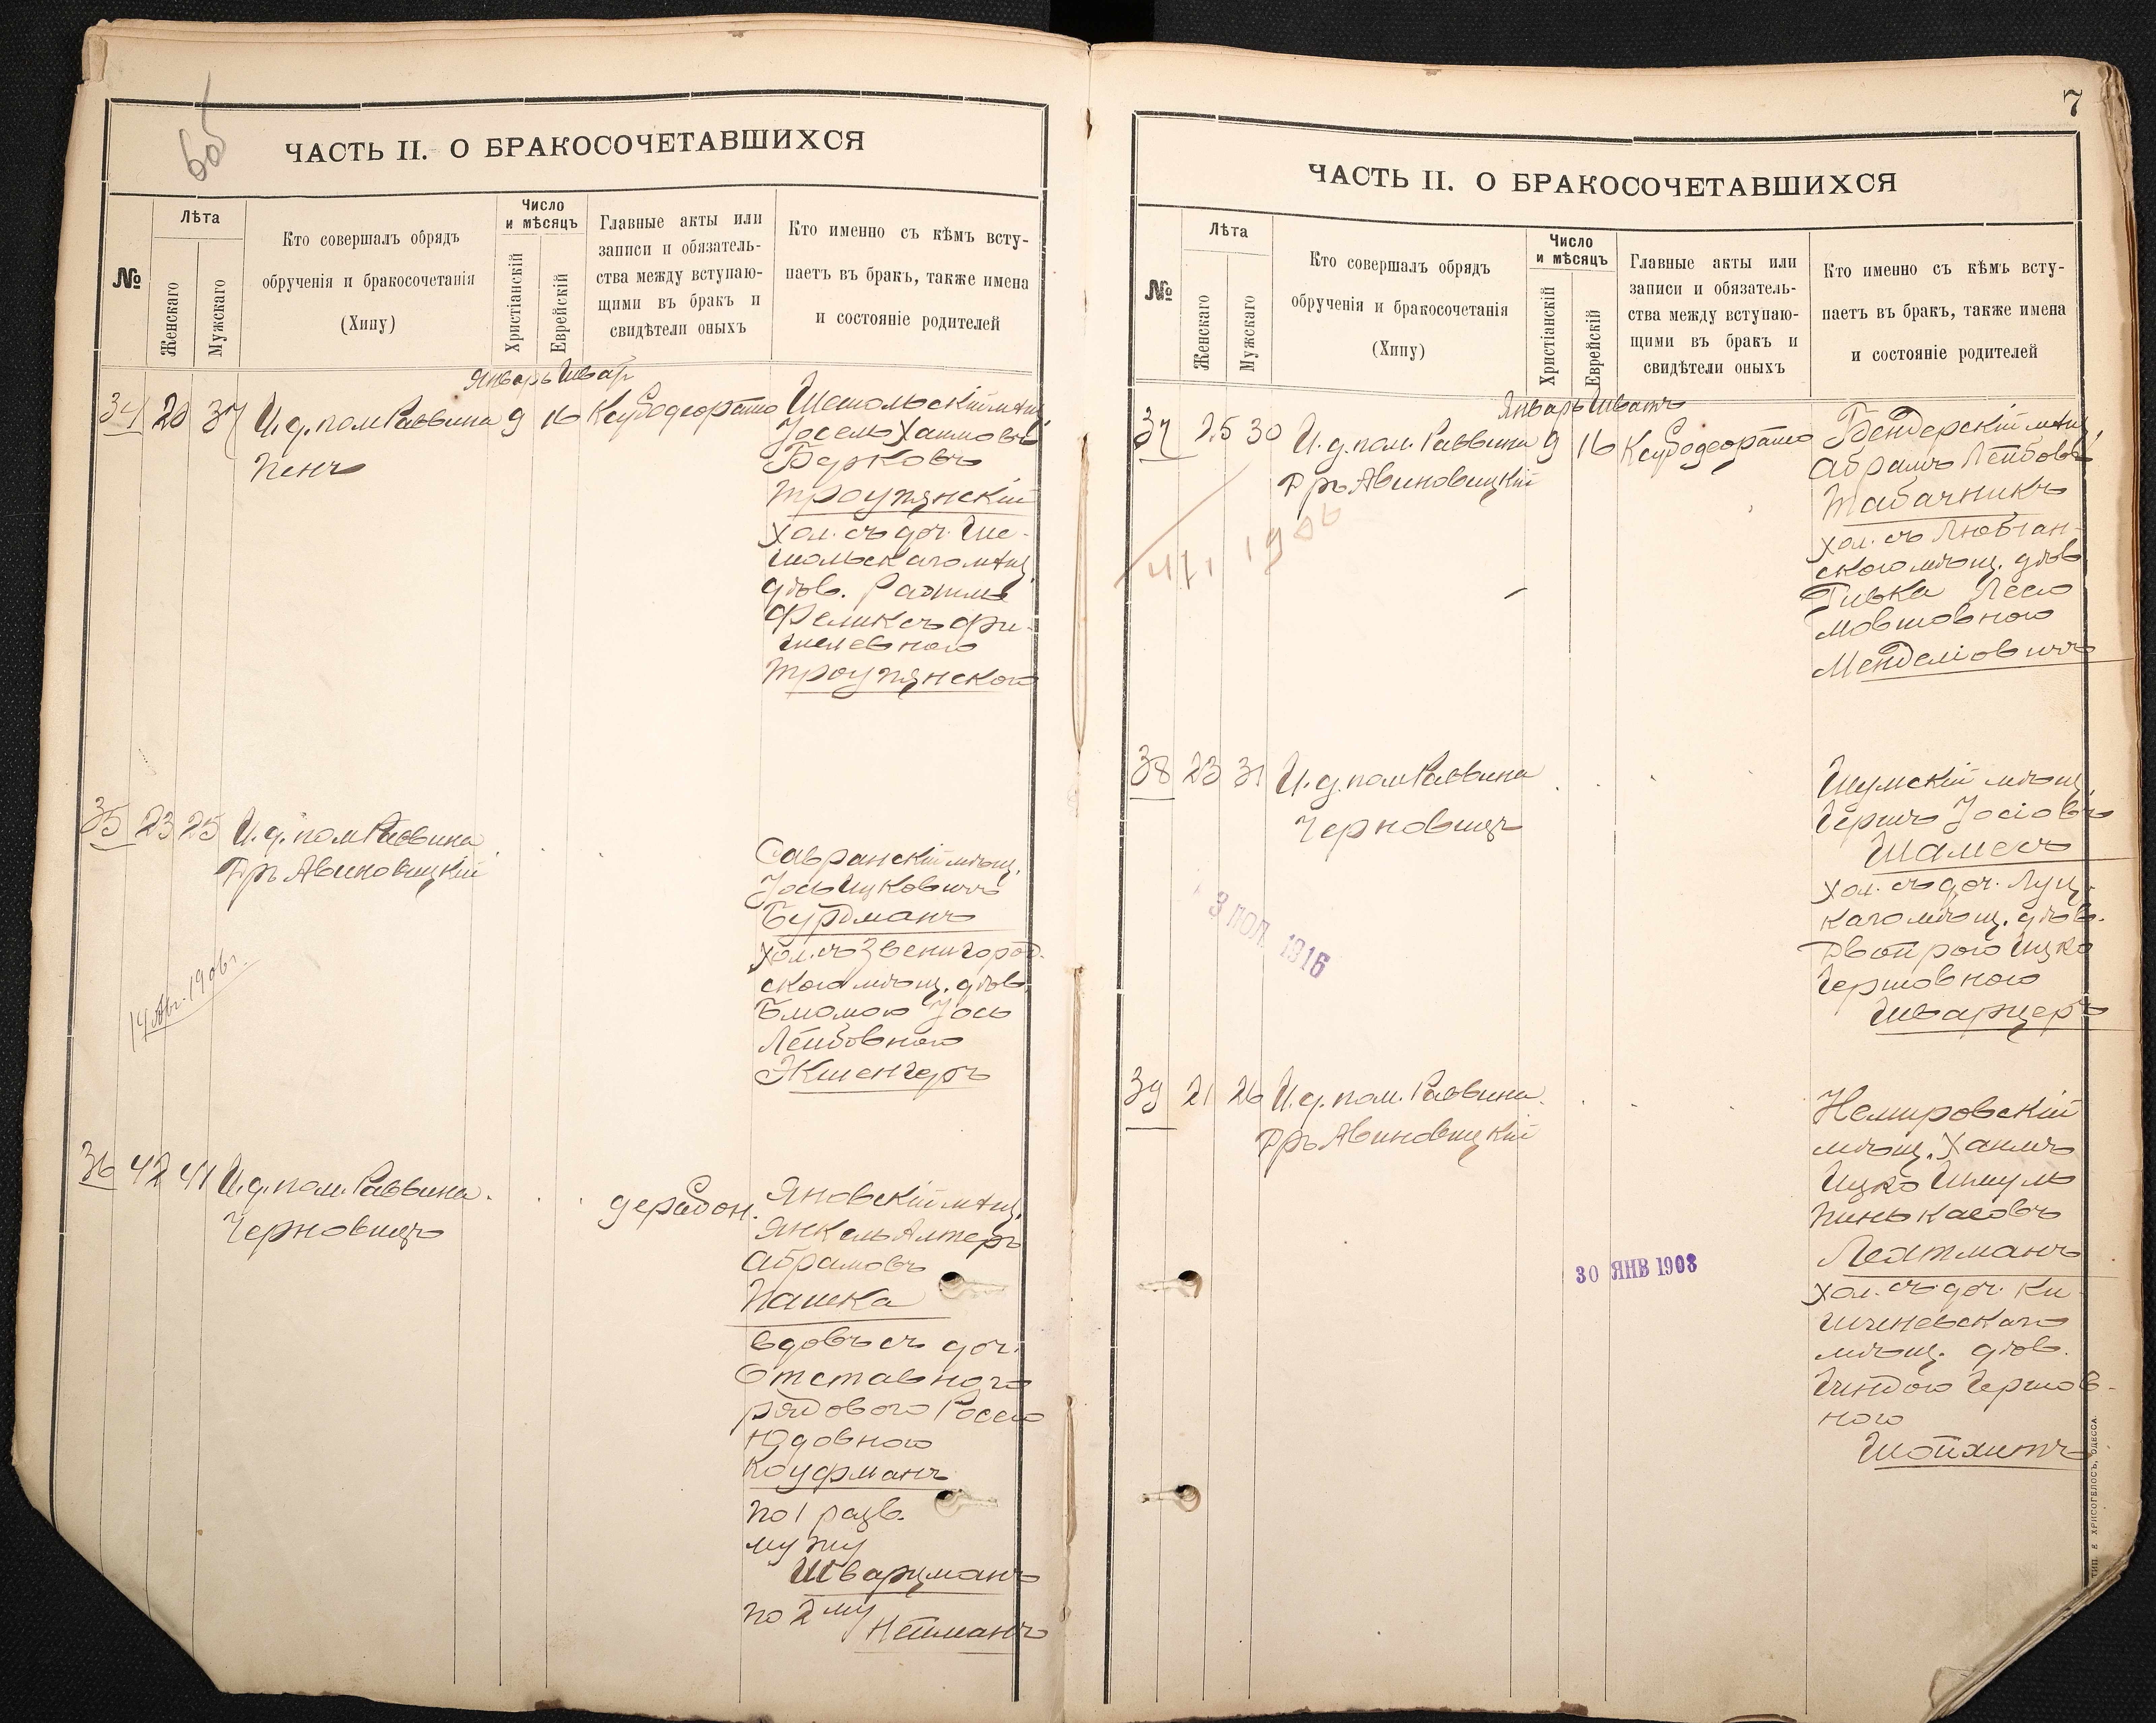 605
ЧАСТЬ II. О БРАКОСОЧЕТАВШИХСЯ
№
Лѣта
Женскаго
Мужскаго
Кто совершалъ обрядъ
обрученія и бракосочетанія
(Хипу)
Число
и мѣсяцъ
Христіанскій
Еврейскій
Главные акты или
записи и обязатель-
ства между вступаю-
щими въ бракъ и
свидѣтели оныхъ
Кто именно съ кѣмъ всту-
паетъ въ бракъ, также имена
и состояніе родителей
Январь Шват
34 20 37 И. д. пом Раввина 9 16
Пенъ
мѣщ.
Іосель Хаимовъ
Берковъ
Троупянскій
хол. съ доч. Ше-
польскаго мѣщ.
дѣв.
Фи-
шелевною
Троупянскою
35 23 25 И. д. пом Раввина
Дръ Авиновицкій
14 Авг. 1906 г.
Савранскій мѣщ.
Іось Ицковичъ
Бурдманъ
хол. съ Звенигород-
скою мѣщ. дѣв.
Бмомою Іось
Лейбовною
Экшенгеръ
36 42 41 И. д. пом. Раввина
Черновицъ
дерабон.
Яновскій мѣщ.
Янкель Алтеръ
Абрамовъ
Пашка
вдовъ съ доч.
Отставного
рядового Росею
Юдовною
Кауфманъ
по 1 разв.
мужу
Шварцманъ
по 2му
Нейманъ
7
ЧАСТЬ II. О БРАКОСОЧЕТАВШИХСЯ
№
Лѣта
Женскаго
Мужскаго
Кто совершалъ обрядъ
обрученія и бракосочетанія
(Хипу)
Число
и мѣсяцъ
Христіанскій
Еврейскій
Главные акты или
записи и обязатель-
ства между вступаю-
щими въ бракъ и
свидѣтели оныхъ
Кто именно съ кѣмъ всту-
паетъ въ бракъ, также имена
и состояніе родителей
Январь Шватъ
37 25 30 И. д. пом. Раввина 9 16
Дръ Авиновицкій
Бендерскій мѣщ.
Абрамъ Лейбовъ
Табачникъ
хол. съ
скою мѣщ. дѣв
Ривка Леею
Мовшовною
Менделіовичъ
38 23 31 И. д. пом Раввина
Черновицъ
3 ПОЛ. 1916
Шумскій мѣщ.
Гершъ Іосіовъ
Шамесъ
хол. съ доч. Луц-
каго мѣщ. дѣв.
Двойрою Ицко
Гершовною
Шварцеръ
39 21 26 И. д. пом. Раввина
Дръ Авиновицкій
30 ЯНВ 1908
Немировскій
мѣщ. Хаимъ
Ицко Шмуль
Пинькасовъ
Лехтманъ
хол. съ доч. Ки-
шиневскаго
мѣщ. дѣв.
Гиндою Гершов-
ною
Шойхитъ
ТИП. Е ХРИСОГЕЛОСЪ, ОДЕССА.